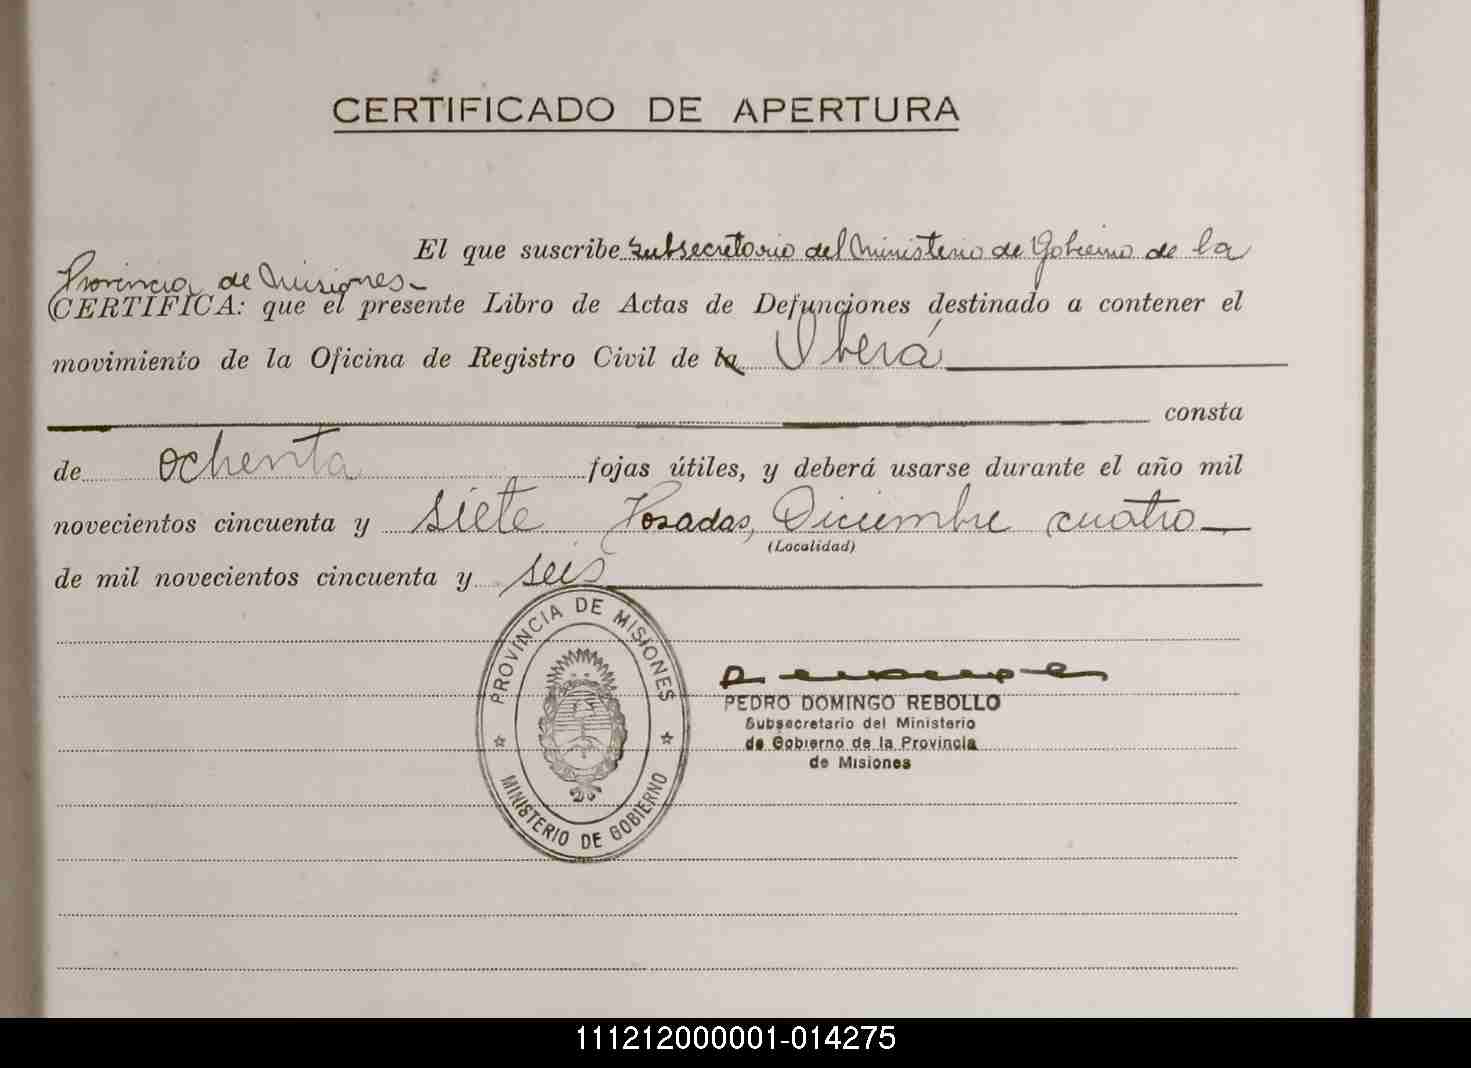 CERTIFICADO DE APERTURA
El que suscribe Subsecretario del Ministerio de Gobierno de la
Provincia de Misiones
CERTIFICA: que el presente Libro de Actas de Defunciones destinado a contener el
movimiento de la Oficina de Registro Civil de la Oberá
consta
de ochenta fojas útiles, y deberá usarse durante el año mil
novecientos cincuenta y siete Posadas, Diciembre cuatro
(Localidad)
de mil novecientos cincuenta y seis
PROVINCIA DE MISIONES
MINISTERIO DE GOBIERNO
PEDRO DOMINGO REBOLLO
Subsecretario del Ministerio
de Gobierno de la Provincia
de Misiones
111212000001-014275